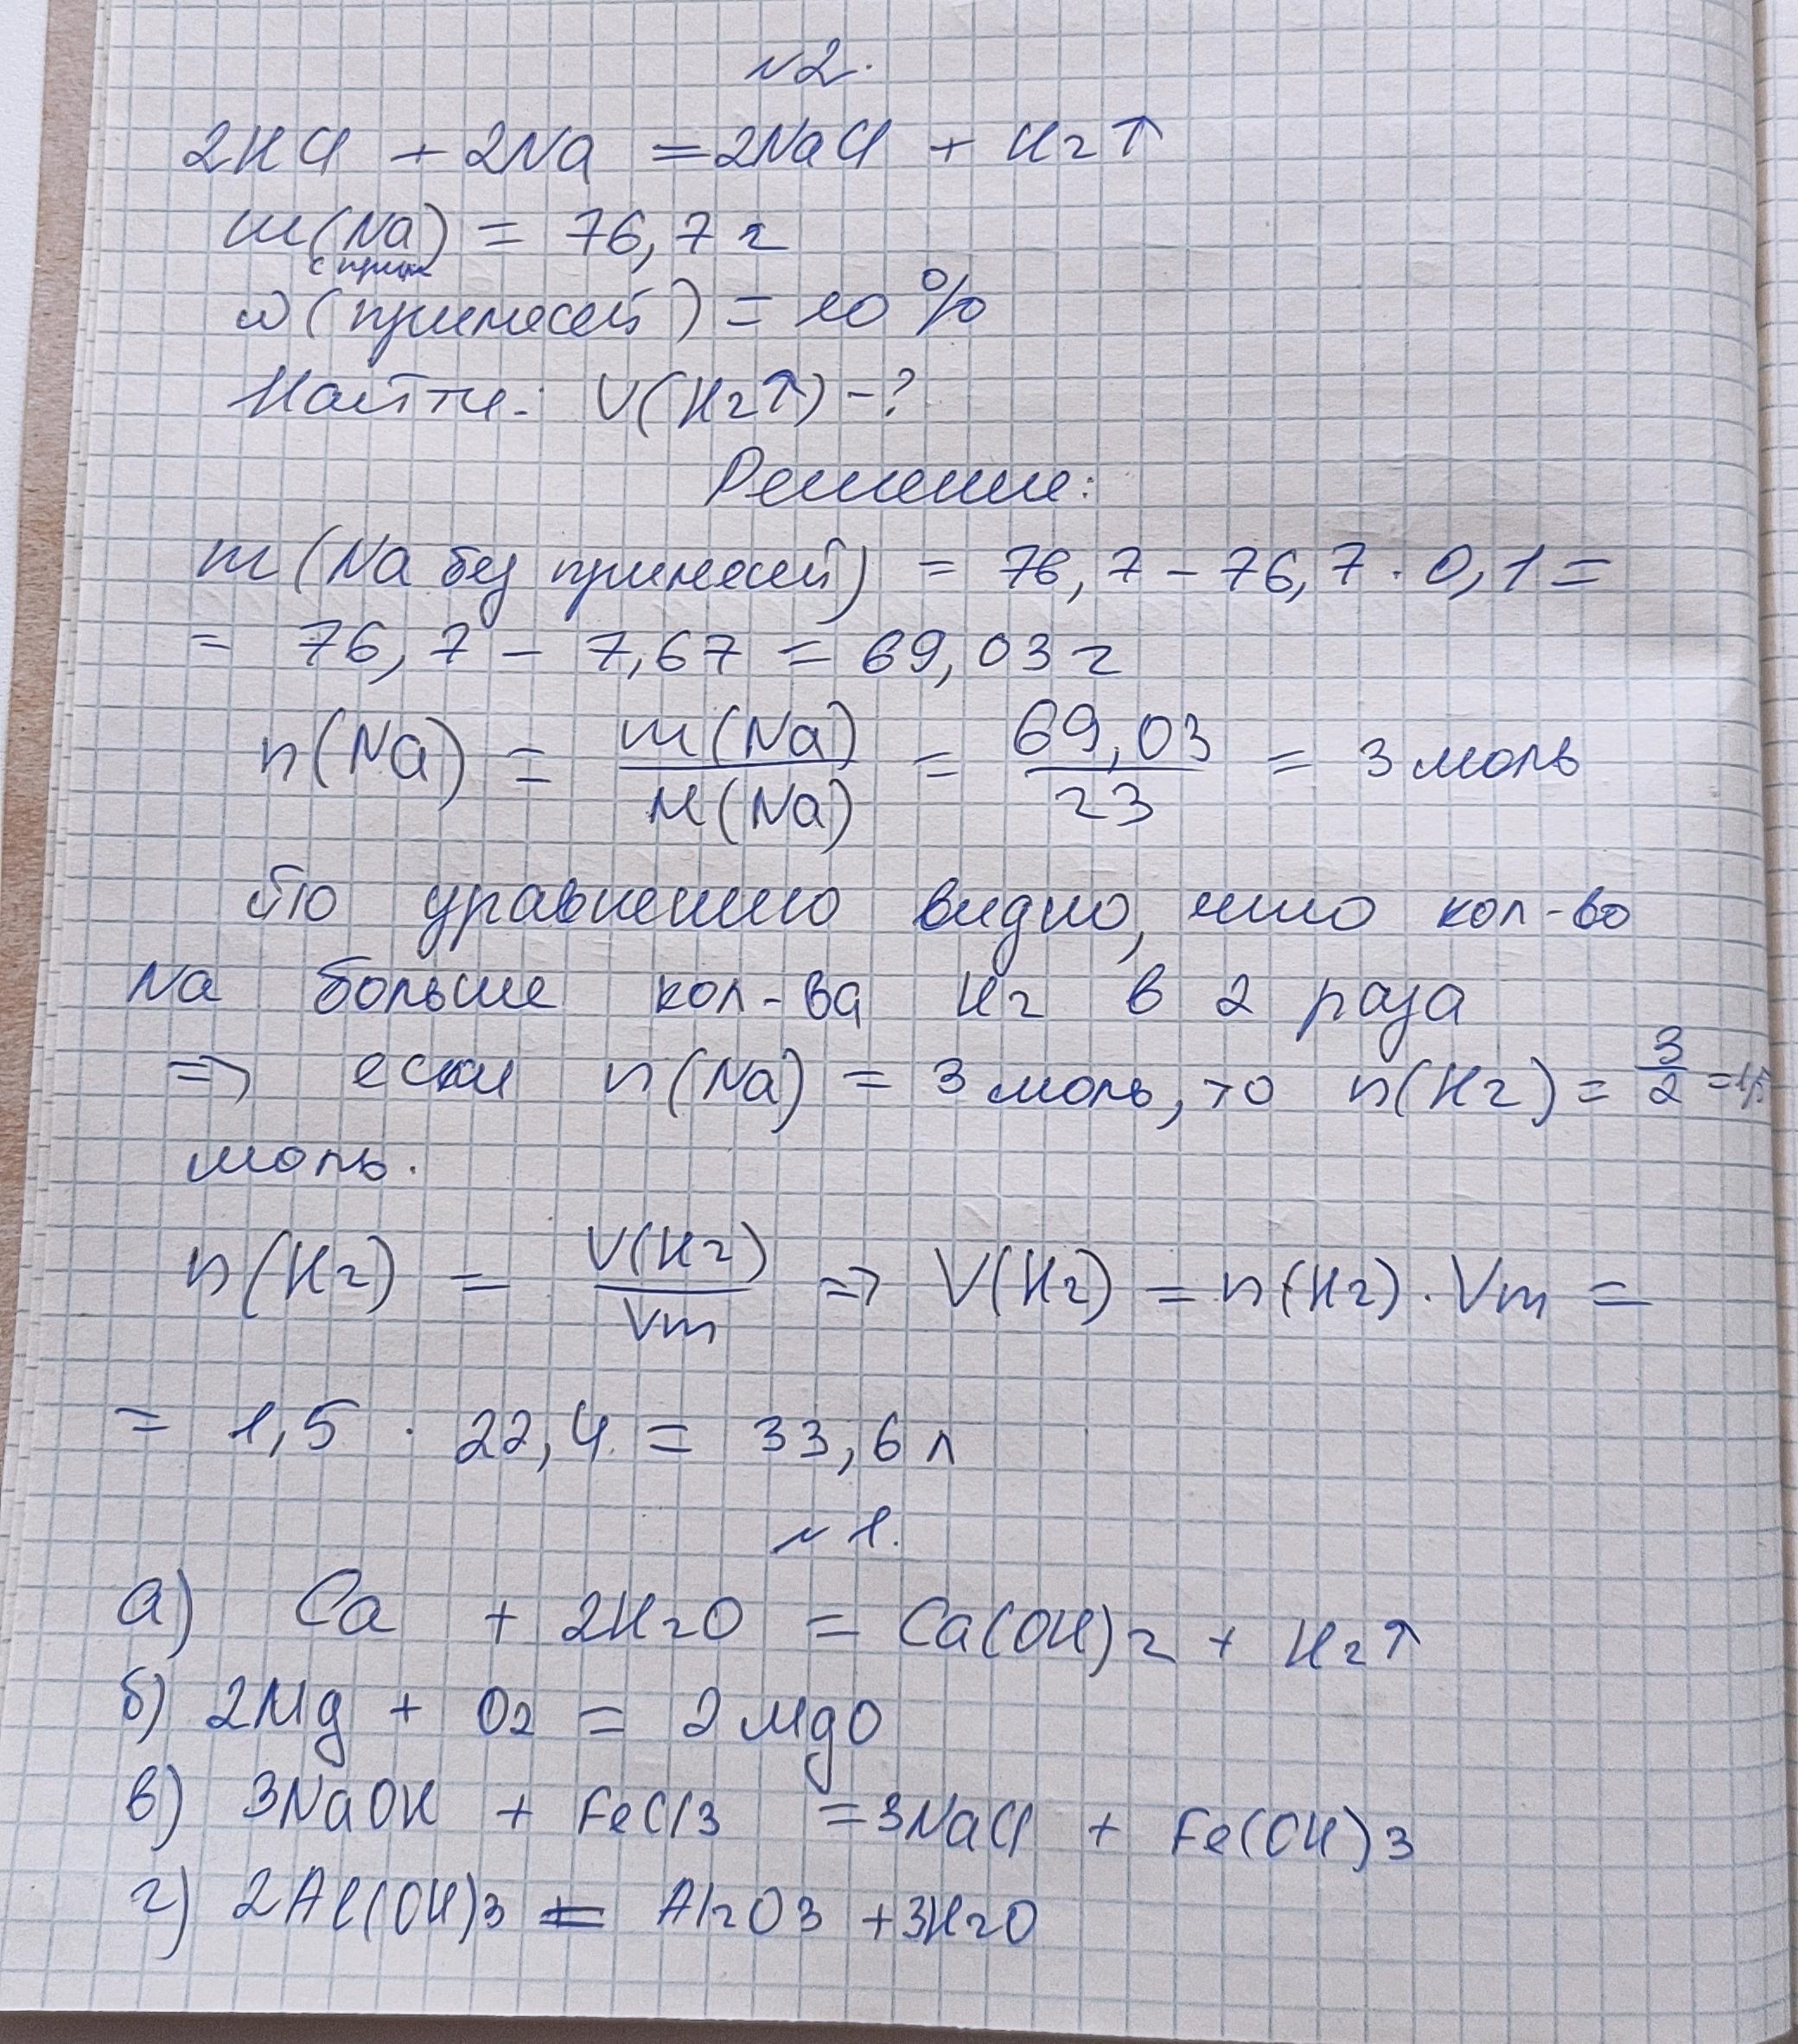 №2.
2HCl + 2Na = 2NaCl + H2↑
m(Na) = 76,7 г
с прим
ω(примесей) = 10 %
Найти: V(H2↑) - ?
Решение:
m(Na без примесей) = 76,7 - 76,7 · 0,1 =
= 76,7 - 7,67 = 69,03 г
n(Na) = m(Na)/M(Na) = 69,03/23 = 3 моль
По уравнению видно, что кол-во
Na больше кол-ва H2 в 2 раза
=> если n(Na) = 3 моль, то n(H2) = 3/2 = 1,5
моль.
n(H2) = V(H2)/Vm => V(H2) = n(H2) · Vm =
= 1,5 · 22,4 = 33,6 л
№1.
а) Ca + 2H2O = Ca(OH)2 + H2↑
б) 2Mg + O2 = 2MgO
в) 3NaOH + FeCl3 = 3NaCl + Fe(OH)3
г) 2Al(OH)3 = Al2O3 + 3H2O